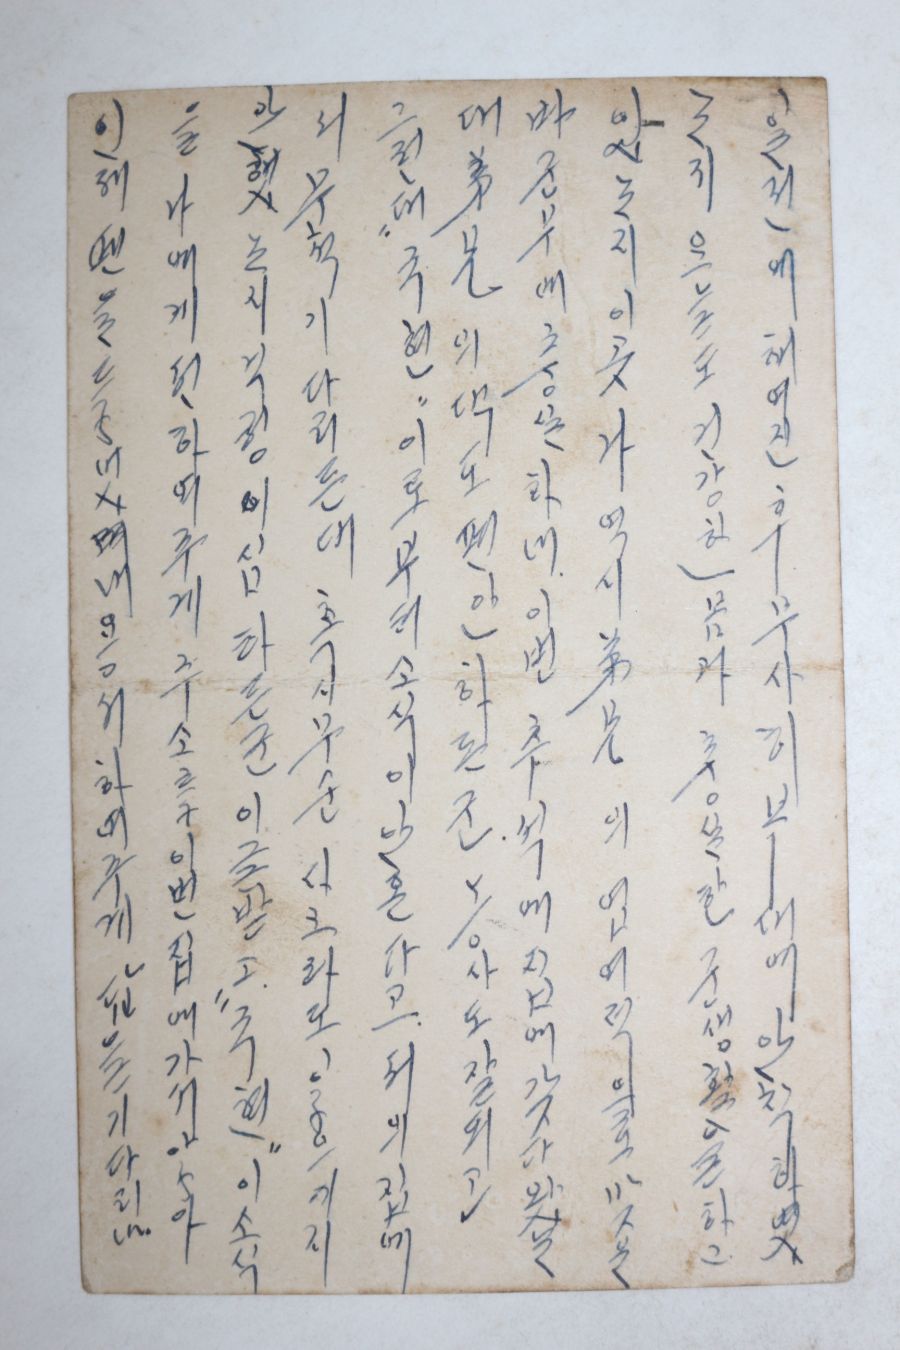 일전에 헤여진 후 무사히 부대에 안착하엿
는지 오늘도 건강한 몸과 충실한 군생활을 하고
있는지 이곳 가 역시 弟兄의 염여덕으로 맛은
바 군무에 충실하네. 이번 추석에 집에 갓다 왓는
대 弟兄의 댁도 편안하면 군 농사도 잘되고
그런대 "국현"이로부터 소식이 안온다고. 저의 집에
서 무척 기다리든대 혹시 무슨 사고라도 이른까지
안했는지 걱정이 심하든군 이글받고. "국현"이 소식
을 나에게 전하여주게 주소록 이번 집에가서 않아
인해 펜을 등내 용서하여주게 답을 기다리니.